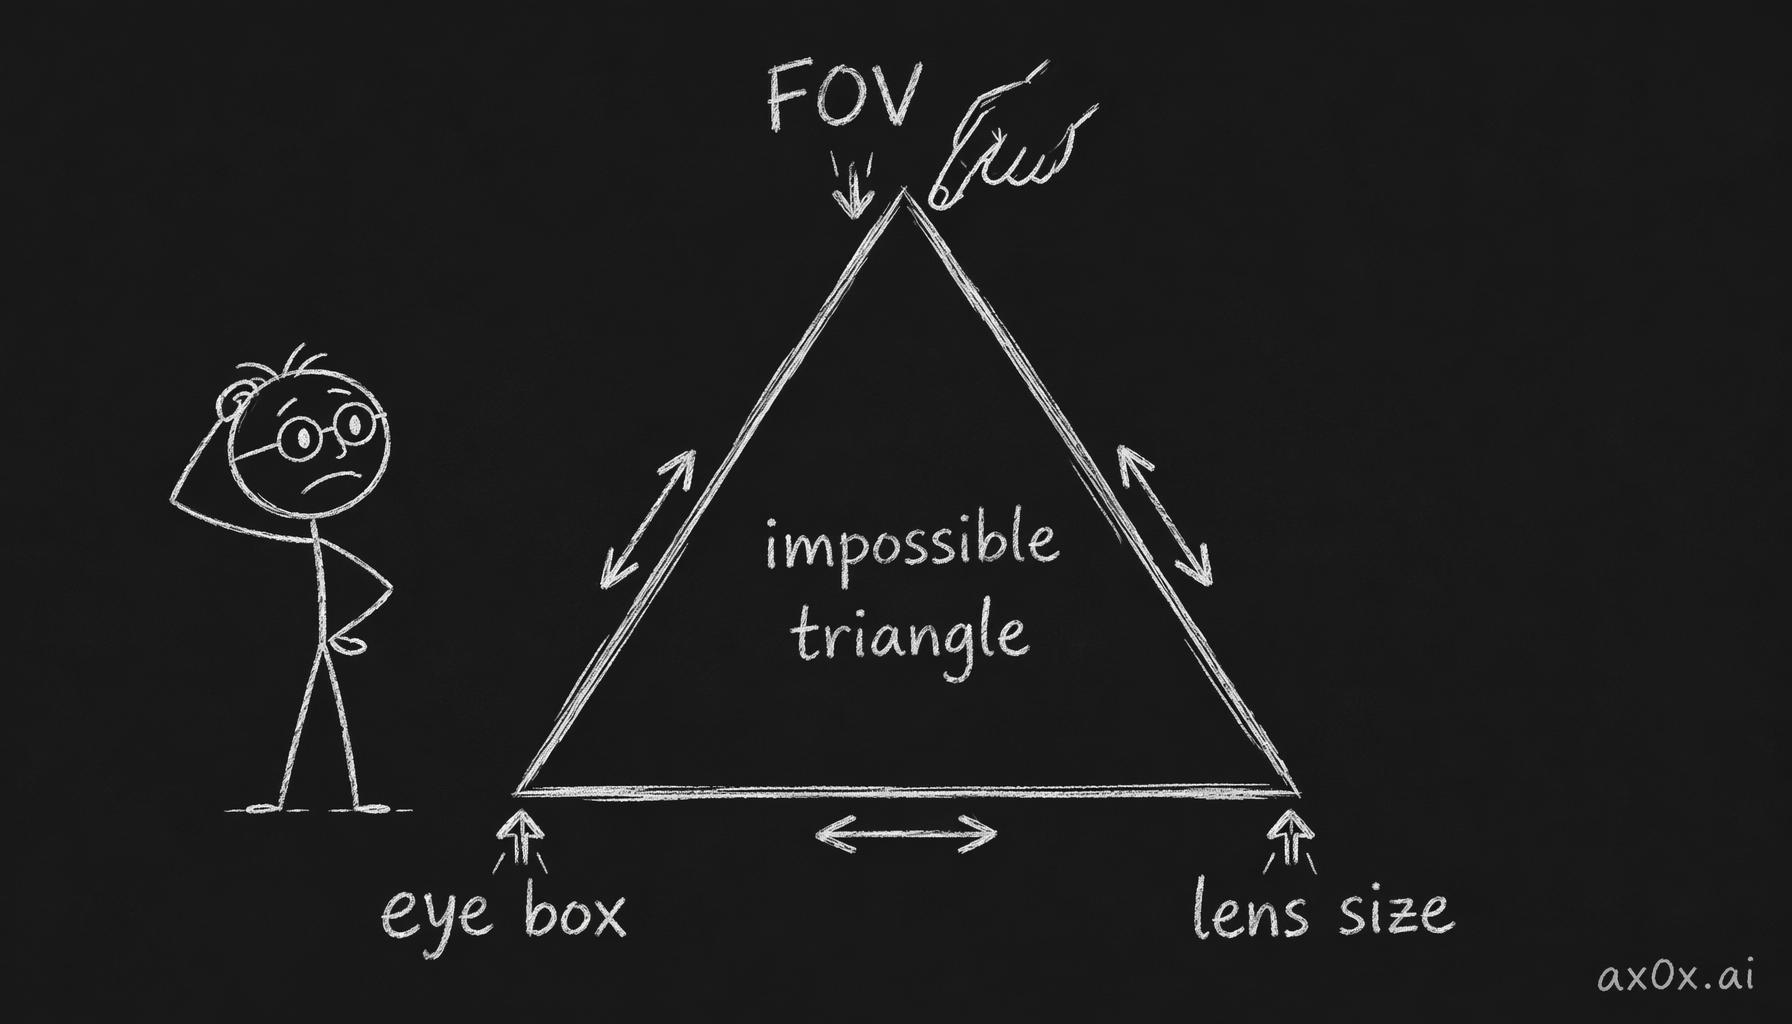 FOV
impossible
triangle
eye box
lens size
ax0x.ai